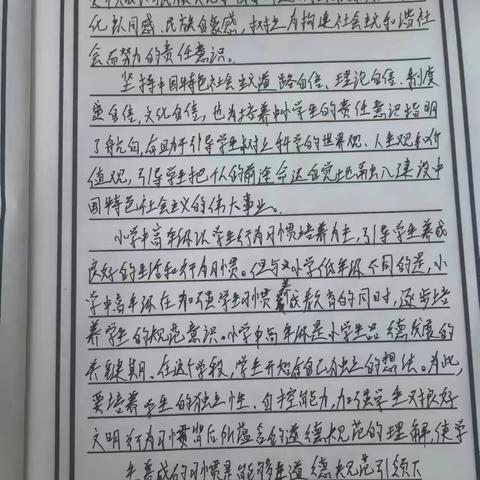 化认同感、民族自豪感，树立为构建社会主义和谐社
会而努力的责任意识。
坚持中国特色社会主义道路自信、理论自信、制度
自信、文化自信，也为培养中小学生的责任意识指明
了航向，有助于引导学生树立科学的世界观、人生观和价
值观，引导学生把个人的前途命运自觉地融入建设中
国特色社会主义的伟大事业。
小学中高年级以学生行为习惯培养为主，引导学生养成
良好的生活和行为习惯。但与小学低年级不同的是，小
学中高年级在加强学生习惯养成教育的同时，逐步培
养学生的规范意识。小学中高年级是小学生品德发展的
关键期、在这个学段，学生开始有自己独立的想法。为此，
要培养学生的独立性、自控能力，加强学生对良好
文明行为习惯背后所蕴含的道德规范的理解，使学
生养成的习惯是能够在道德规范引领下